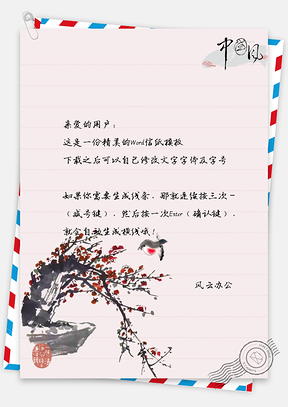 中国风
亲爱的用户：
这是一份精美的Word信纸模板
下载之后可以自己修改文字字体及字号
如果你需要生成线条，那就连续按三次-
（减号键），然后按一次Enter（确认键），
就会自动生成横线哦！
风云办公